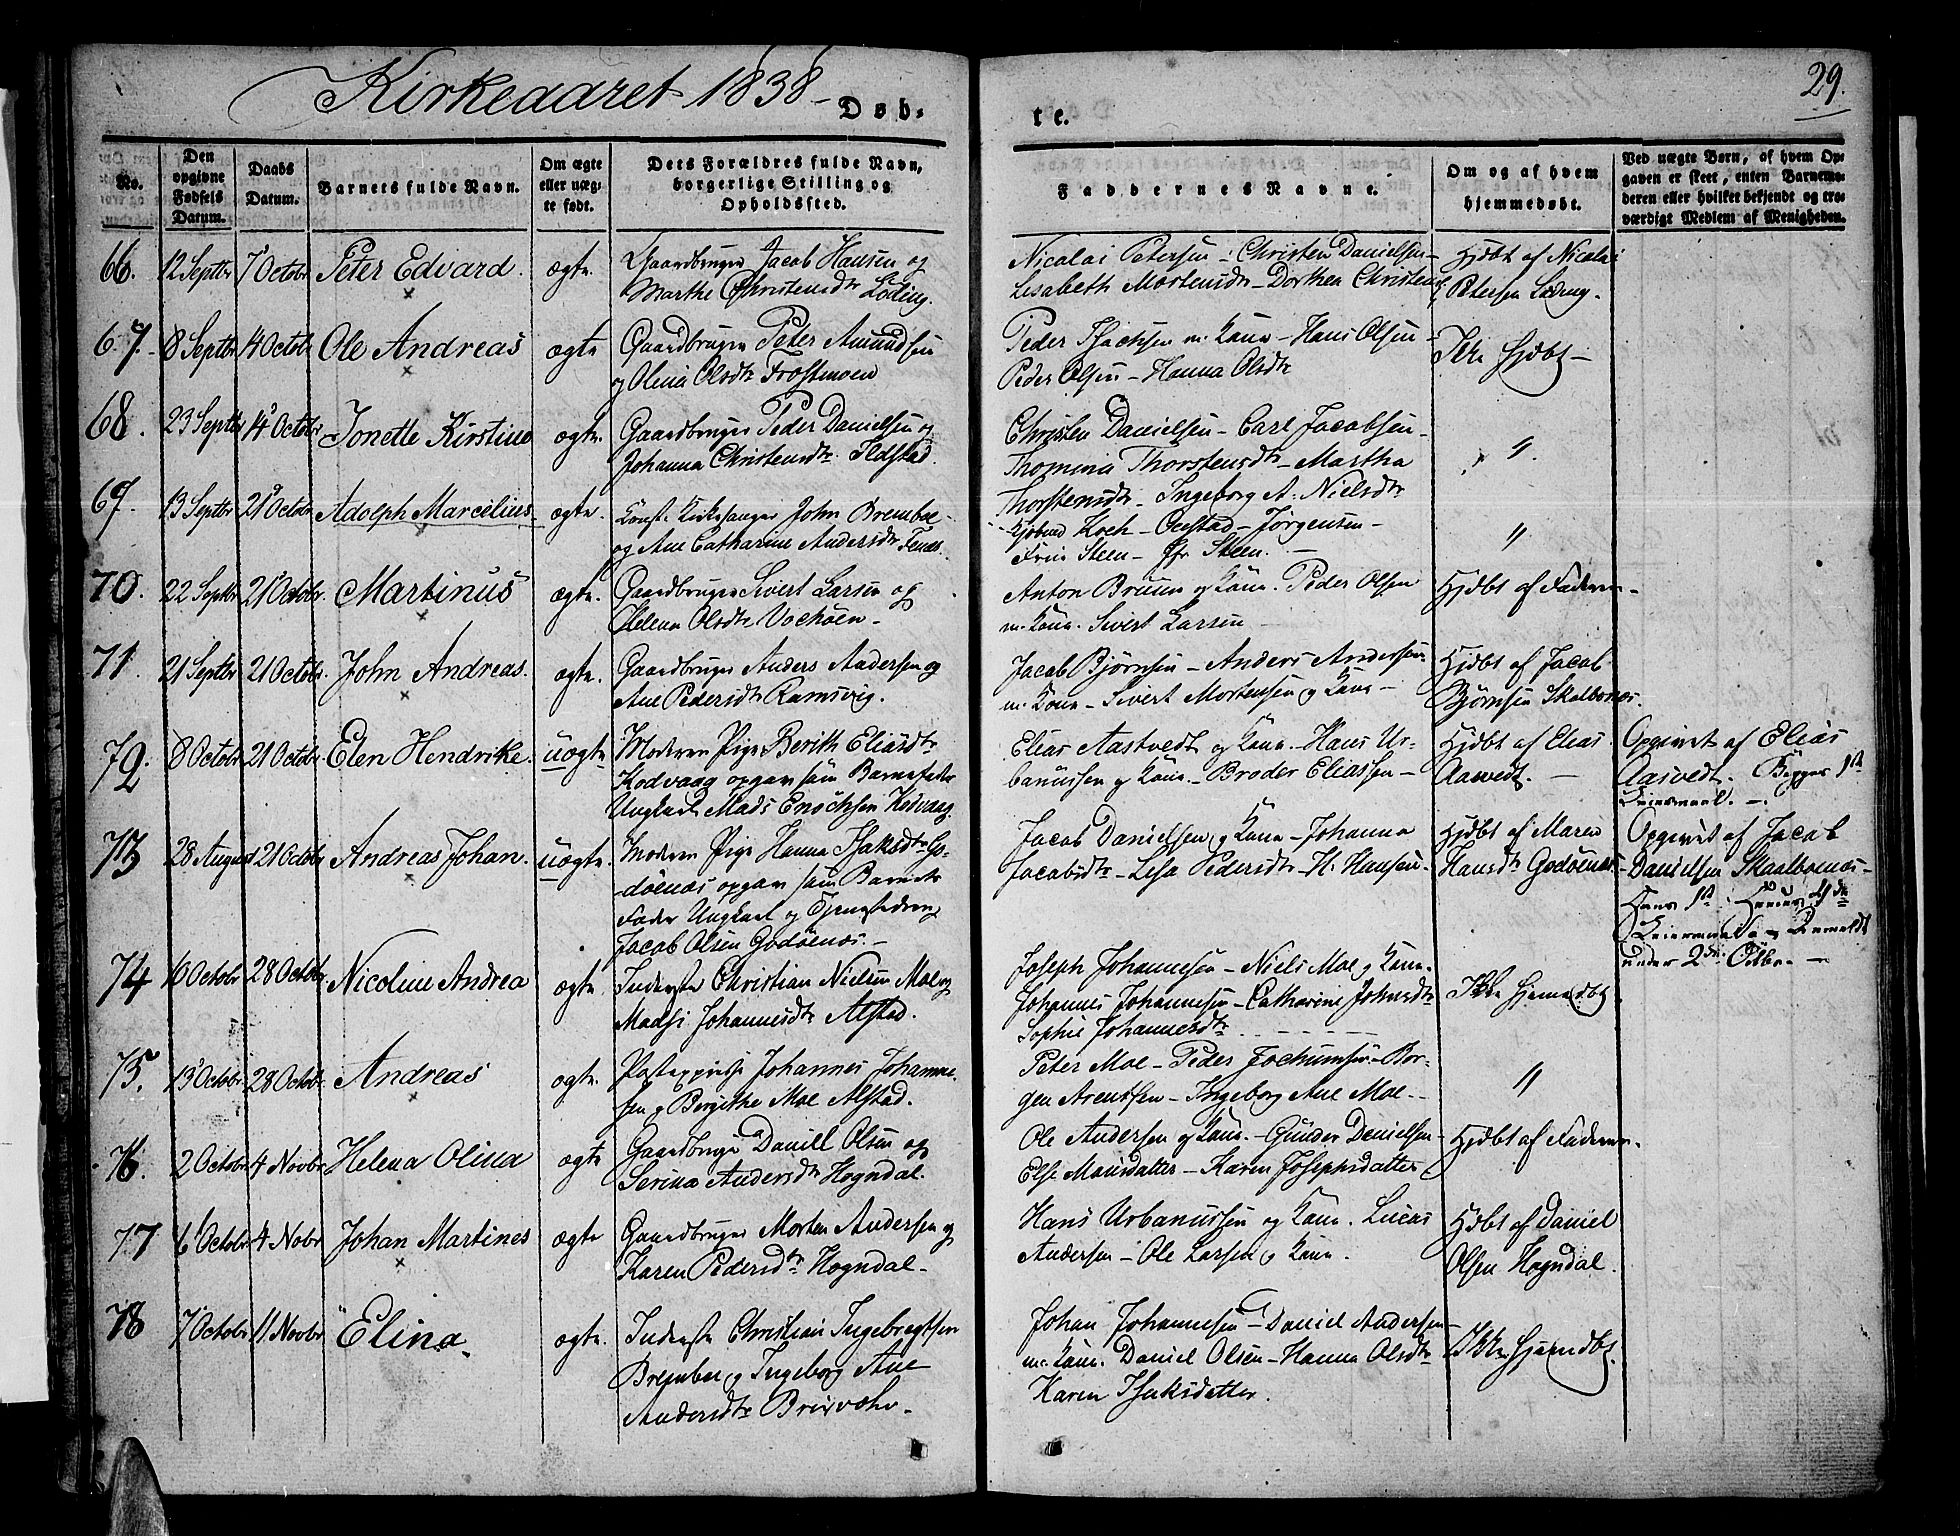 Kirkeaaret 1838 – Døb-
te.
29.
No.
Den opgivne Fødsels Datum.
Daabs Datum.
Barnets fulde Navn.
Om ægte eller uægte født.
Dets Forældres fulde Navn, borgerlige Stilling og Opholdssted.
Faddernes Navne.
Om og af hvem hjemmedøbt.
Ved uægte Børn, af hvem Opgaven er skeet, enten Barnemoderen eller hvilket bekjendt og troværdigt Medlem af Menigheden.
66. 12 Septbr 7 Octobr Peter Edvard. ægte.
Gaardbruger Jacob Hansen og
Marthe Christensdtr Løding.
Nicolai Petersen – Christen Danielsen –
Lisabeth Mortensdtr – Dorthea Christensd
Hjdbt af Nicolai
Petersen Løding.
67. 8 Septbr 14 Octobr Ole Andreas ægte
Gaardbruger Peter Amundsen
og Olina Olsdtr Frostmoen
Peder Isachsen m. Kone – Hans Olsen –
Peder Olsen – Hanna Olsdtr
Ikke Hjdbt –
68. 23 Septbr 14 Octobr Jonette Kirstine ægte.
Gaardbruger Peder Danielsen og
Johanna Christensdtr Ildstad.
Christen Danielsen – Carl Jacobsen –
Thomina Thorstensdtr – Martha
Thorstensdtr – Ingeborg A: Nielsdtr
"
69. 13 Septbr 21 Octobr Adolph Marcelius ægte.
Const. Kirkesanger John Bremboe
og Ane Catharine Andersdtr Fenes.
Kjøbmd Koch – – Jørgensen –
Frue Steen – Steen. –
"
70. 22 Septbr 21 Octobr Martinus ægte.
Gaardbruger Sivert Larsen og
Helena Olsdtr Vochöen –
Anton Bruun og Kone. Peder Olsen
m. Kone. Sivert Larsen –
Hjdbt af Faderen –
71. 21 Septbr 21 Octobr John Andreas. ægte.
Gaardbruger Anders Andersen og
Ane Pedersdtr Ramsvig.
Jacob Bjørnsen – Anders Andersen
m. Kone – Sivert Mortensen og Kone –
Hjdbt af Jacob
Bjørnsen Skalbones.
72. 8 Octobr 21 Octobr Elen Hendrike. uægte
Moderen Pige Berith Eliasdtr
Kodvaag opgav som Barnefader
Ungkarl Mads Enochsen Kodvaag
Elias Aastvedt og Kone. Hans Ur-
banussen og Kone – Broder Eliassen –
Hjdbt af Elias
Aasvedt. –
Opgivet af Elias
Aasvedt. Begges 1ste
Leiermaal. –
73 28 August 21 Octobr Andreas Johan. uægte.
Moderen Pige Hanna Isaksdtr Go-
döenæs opgav som Barnets
Fader Ungkarl og
Jacob Olsen Godöenæs. –
Jacob Danielsen og Kone – Johanna
Jacobsdtr – Lisa Pedersdtr – H: Hansen –
Hjdbt af Maren
Hansdtr Godöenes.
Opgivet af Jacob
Danielsen Skaalbones –
Hans 1ste Hendes 2den
Leiermaal –
under 2den Octbr. –
74 10 Octobr 28 Octobr Nicoline Andrea ægte.
Inderste Christian Nielsen Moe og
Madsi Johannesdtr Alstad.
Joseph Johannesen – Niels Moe og Kone.
Johannes Johannesen – Catharine Johnsdtr
Sophie Johannesdtr
Ikke Hjemmedbt
75. 13 Octobr 28 Octobr Andreas ægte.
Johannes Johanne-
sen og Bergithe Moe Alstad.
Peter Moe – Peder Jochumsen – Bør-
gen Arentsen – Ingeborg Ane Moe –
"
76. 2 Octobr 4 Novbr Helena Olina ægte
Gaardbruger Daniel Olsen og
Serina Andersdtr Hogndal.
Ole Andersen og Kone – Gunder Danielsen –
Else Monsdatter – Karen Josephsdatter
Hjdbt af Faderen –
77 6 Octobr 4 Novbr Johan Martines ægte
Gaardbruger Morten Andersen og
Karen Pedersdtr Hogndal –
Hans Urbanussen og Kone. Lucas
Andersen – Ole Larsen og Kone.
Hjdbt af Daniel
Olsen Hogndal.
78 7 Octobr 11 Novbr Elina. ægte.
Inderste Christian Ingebregtsen
Bremboe og Ingeborg Ane
Andersdtr
Johan Johannesen – Daniel Andersen –
m. Kone. Daniel Olsen – Hanna Olsdtr
Karen Isaksdatter.
Ikke Hjemdbt.